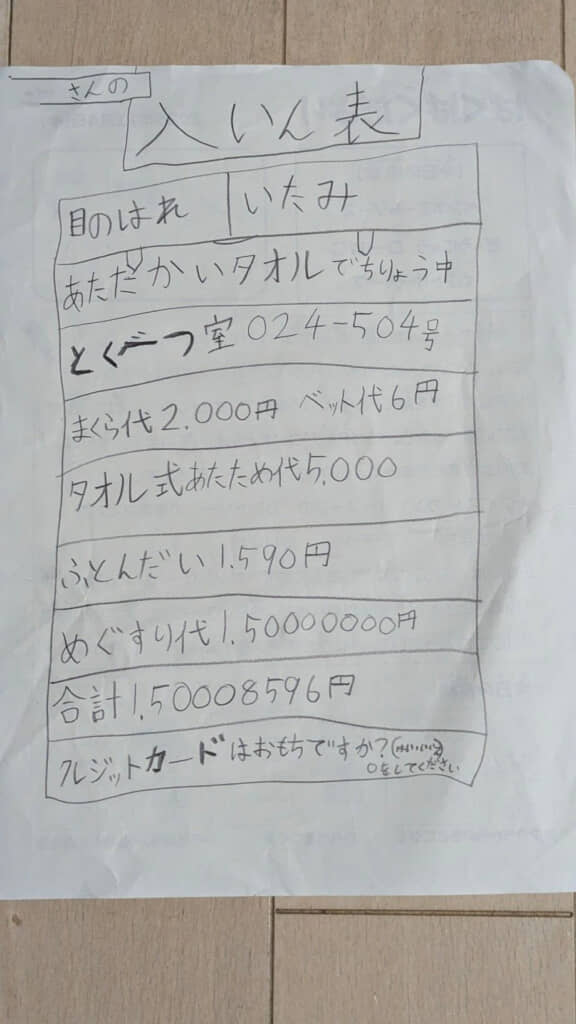 さんの
入いん表
目のはれ いたみ
あただかいタオルでちりょう中
とくべつ室024-504号
まくら代2.000円 ベット代6円
タオル式あたため代5.000
ふとんだい1.590円
めぐすり代1.50000000円
合計1.50008596円
クレジットカードはおもちですか?(はい・いいえ)
○をしてください